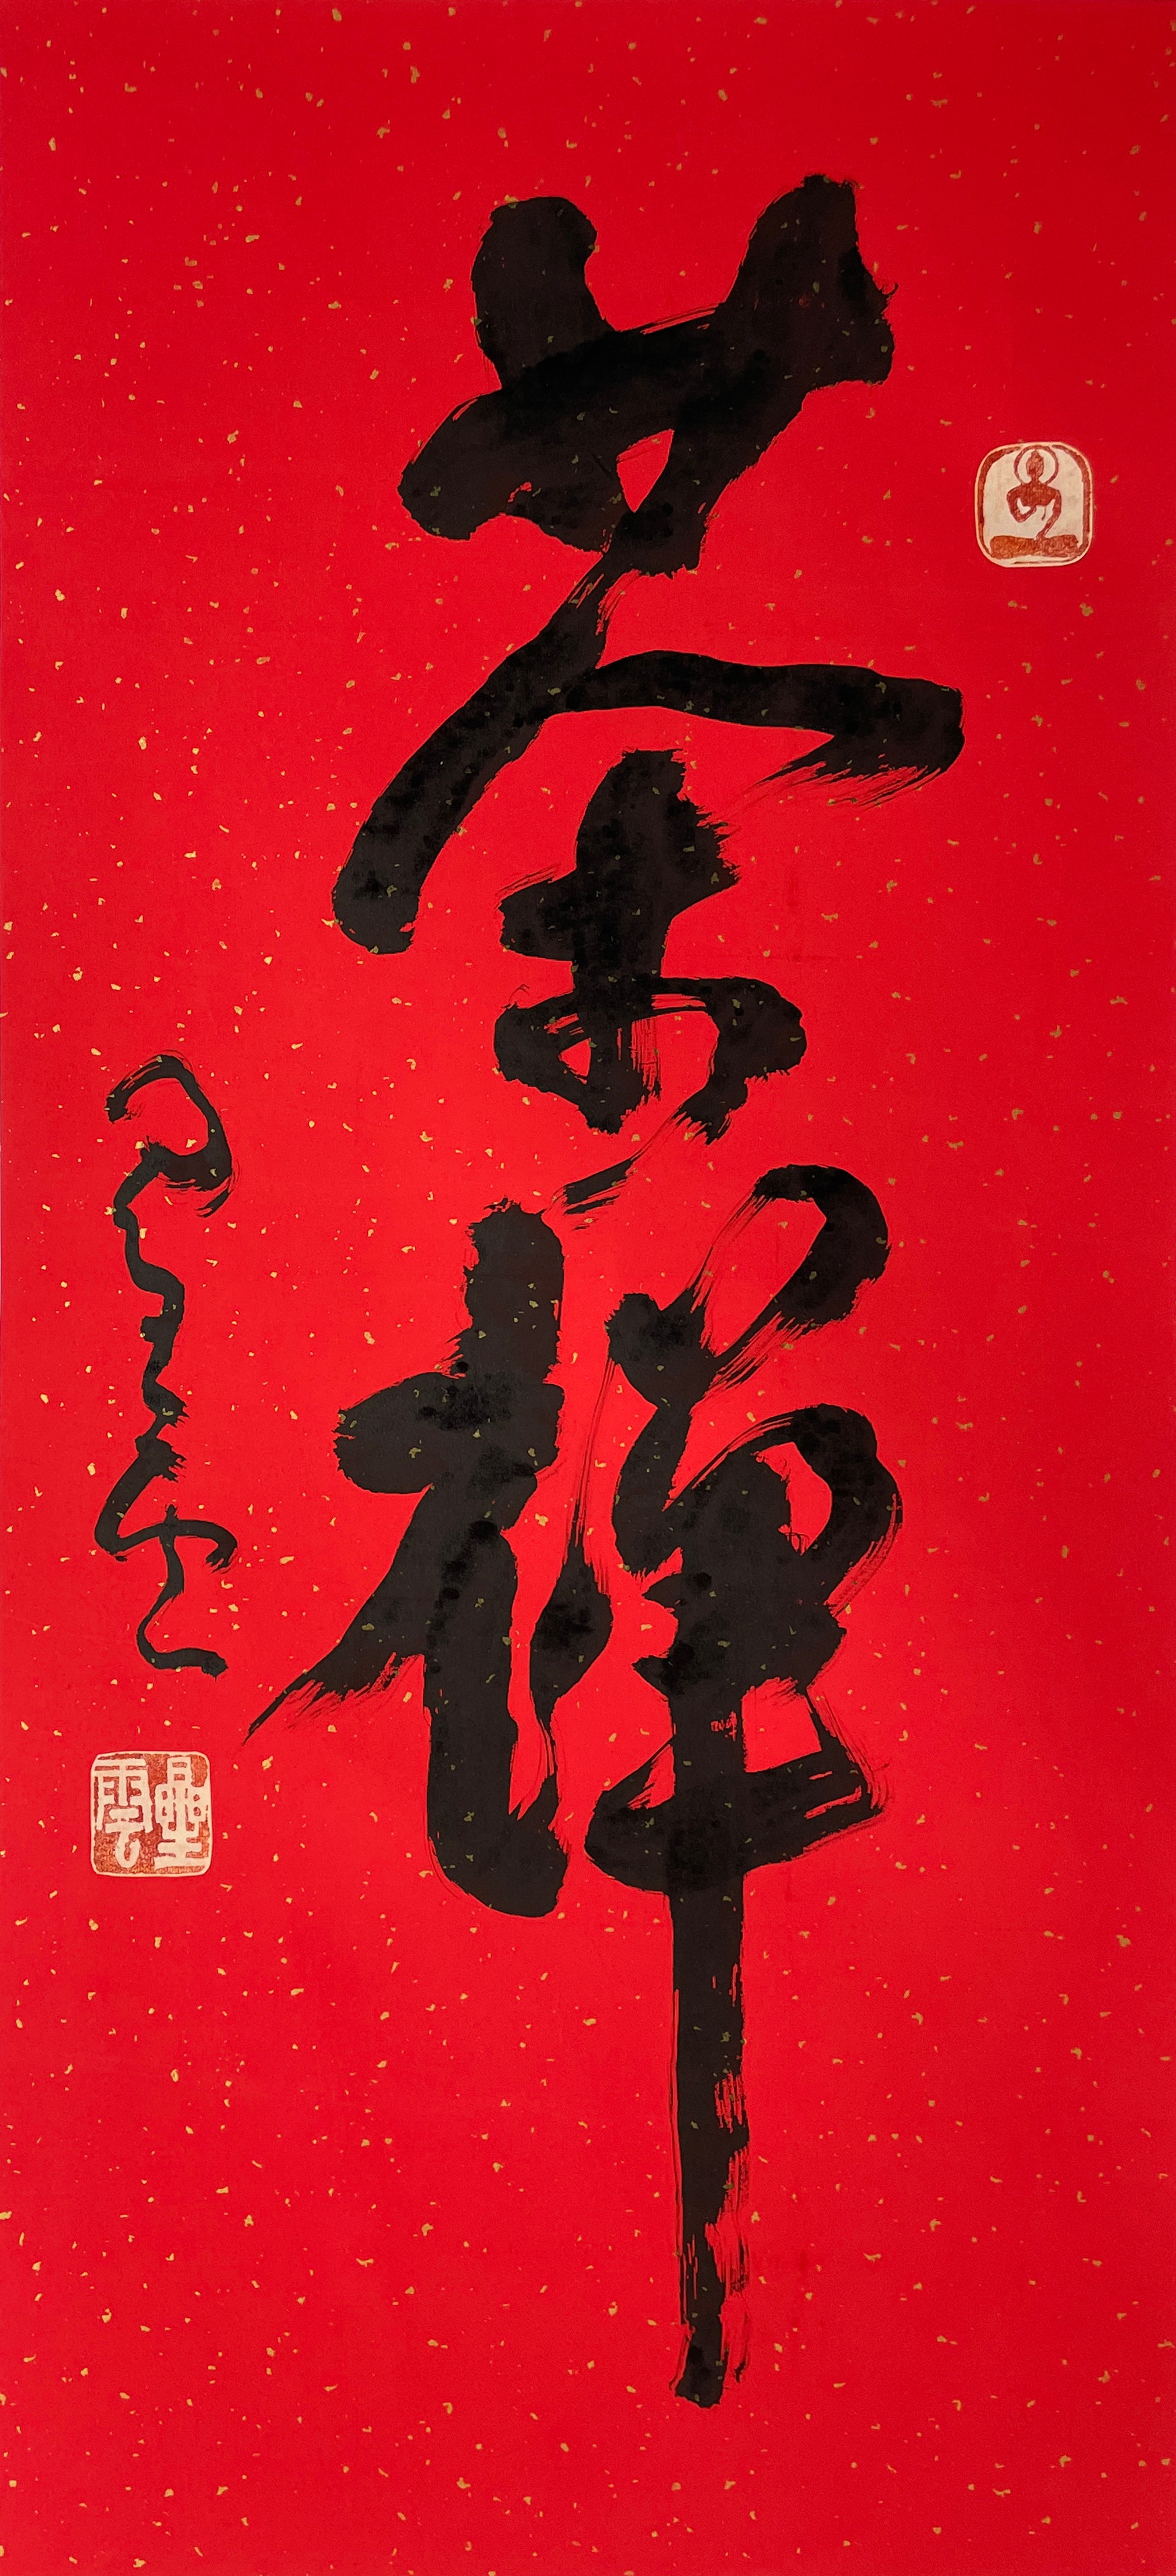 茶禪
星雲
星雲